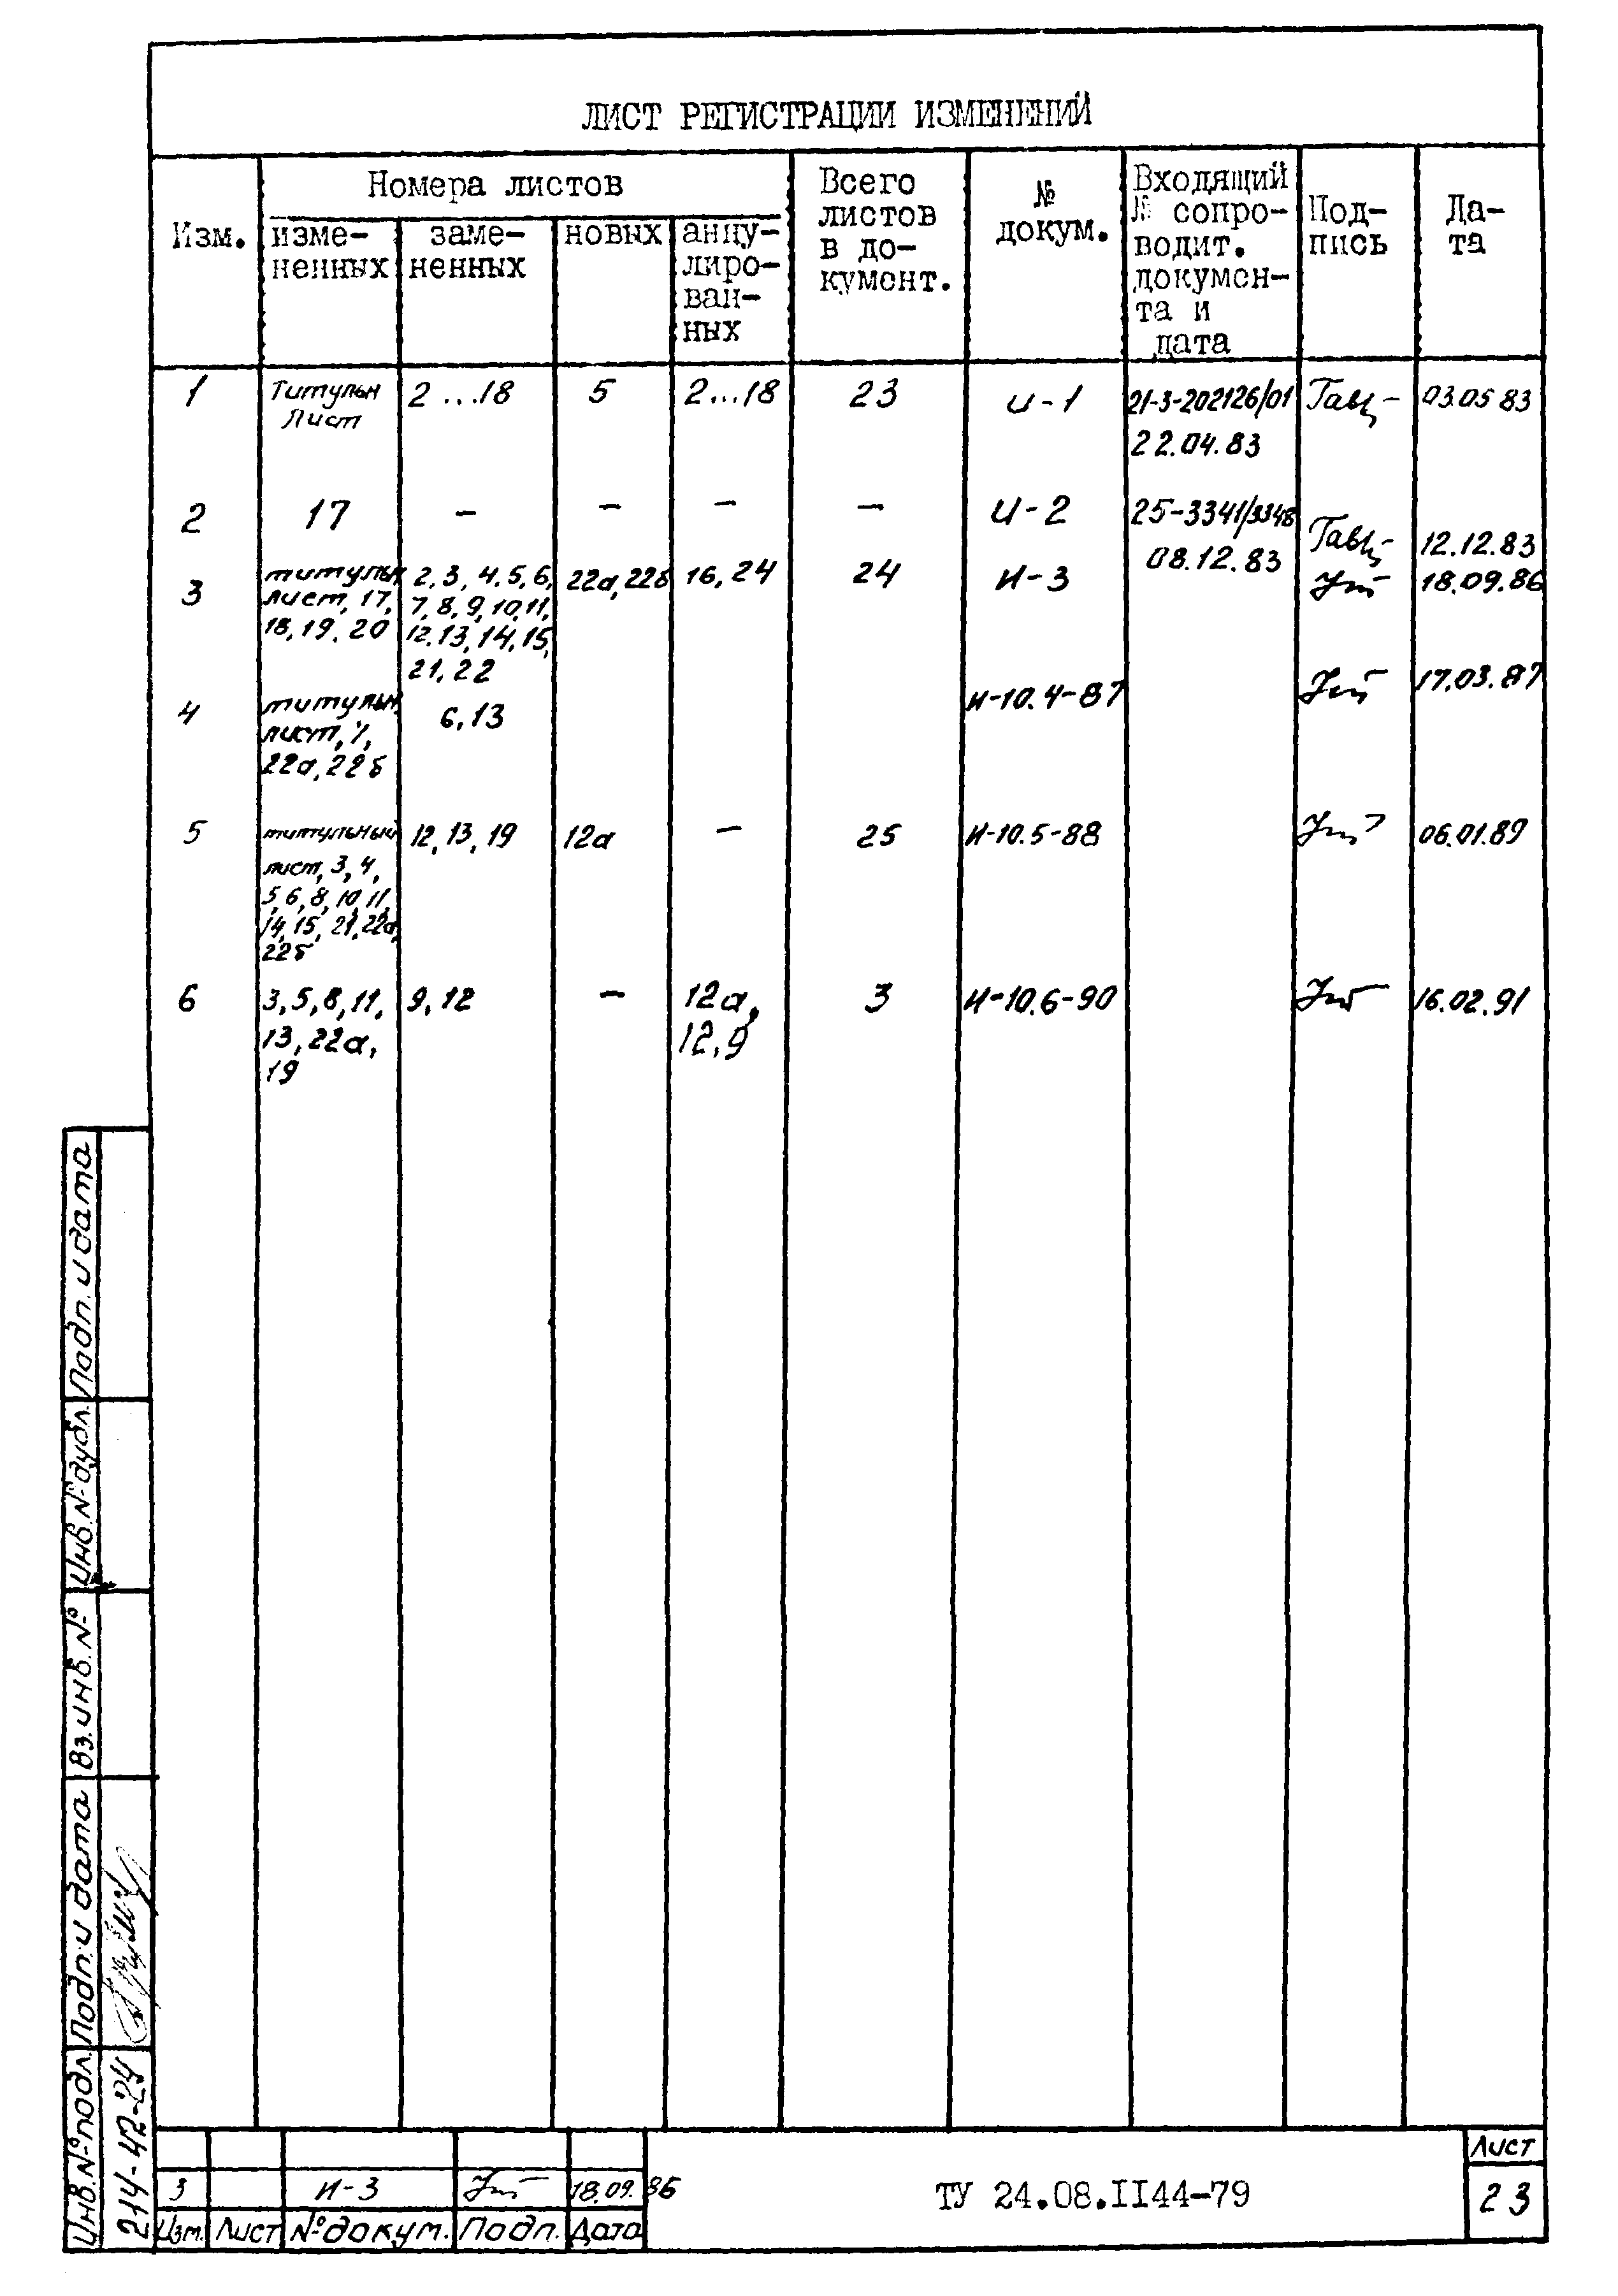 ЛИСТ РЕГИСТРАЦИИ ИЗМЕНЕНИЙ
Изм.
Номера листов
изме-
ненных
заме-
ненных
новых
анну-
лиро-
ван-
ных
Всего
листов
в до-
кумент.
№
докум.
Входящий
№ сопро-
водит.
докумен-
та и
дата
Под-
пись
Да-
та
1 Титульн 2...18 5 2...18 23 И-1 21-3-202126/01 03.05 83
Лист 22.04.83
2 17 – – – – И-2 25-3341/3348 12.12.83
08.12.83
3 титульн 2,3,4,5,6, 22а,22б 16,24 24 И-3 18.09.86
лист, 17, 7,8,9,10,11,
18,19,20 12,13,14,15,
21,22
4 титульн 6,13 И-10.4-87 17.03.87
лист,
22а,22б
5 титульный 12,13,19 12а – 25 И-10.5-88 06.01.89
лист, 3,4,
5,6,8,10,11,
14,15,21,22а,
22б
6 3,5,8,11, 9,12 – 12а, 3 И-10.6-90 16.02.91
13,22а, 12,9
19
Подп. и дата
Инв.№ дубл.
Вз.инв.№
Подп. и дата
Инв.№ подл.
214-42-24
3 И-3 18.09.86
Изм. Лист № докум. Подп. Дата
ТУ 24.08.II44-79
Лист
23